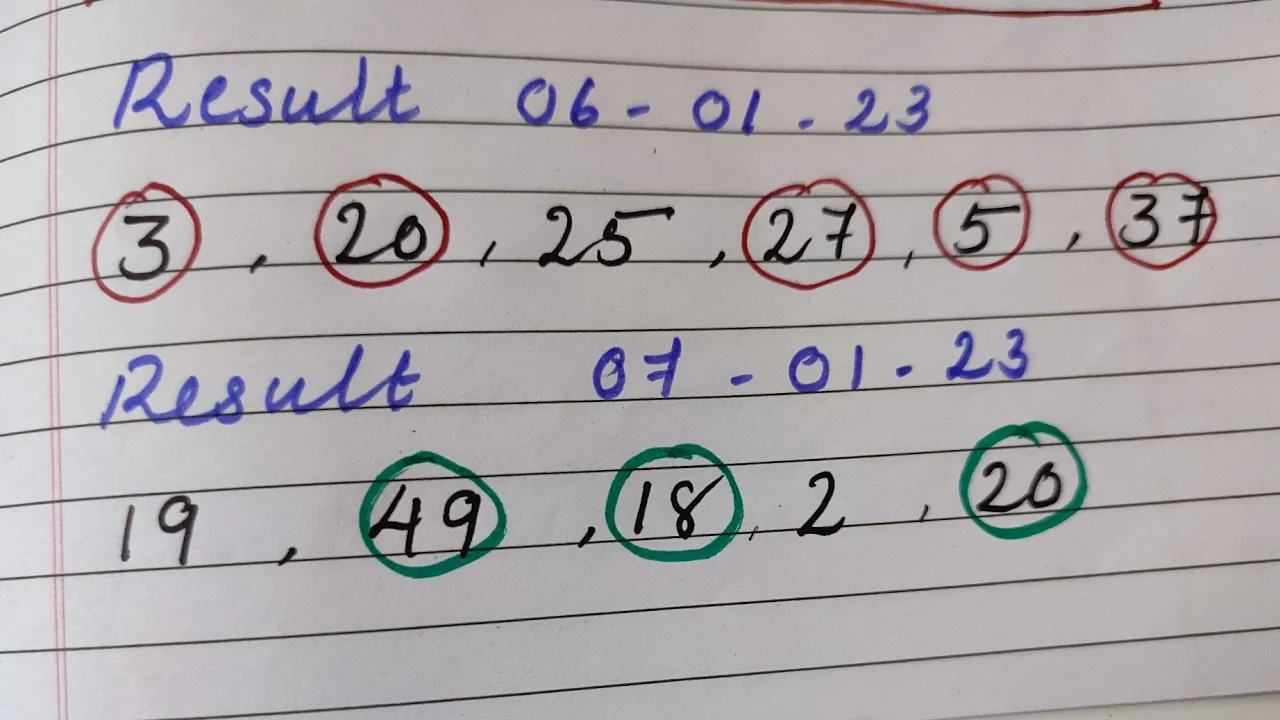 Result 06-01.23
3, 20, 25, 27, 5, 37
Result 07-01.23
19, 49, 18, 2, 20